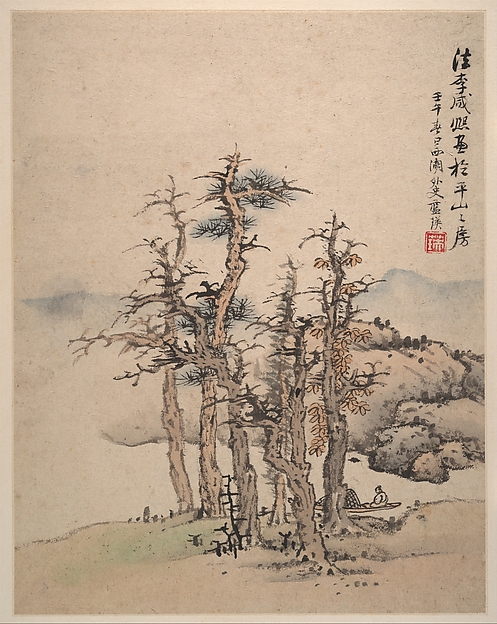 法李咸熙画於平山之房
壬午春日西湖外史藍瑛